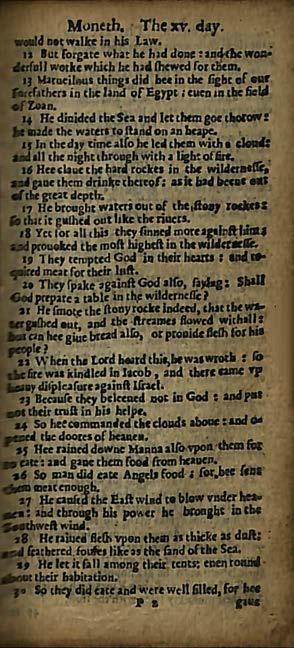 Moneth. The xv. day.
would not walke in his Law.
12 But forgate what he had done : and the won-
derfull worke which he had shewed for them.
13 Maruellous things did hee in the sight of our
forefathers in the land of Egypt : euen in the field
of Zoan.
14 He diuided the Sea and let them goe thorow :
he made the waters to stand on an heape.
15 In the day time also he led them with a cloud :
and all the night through with a light of fire.
16 Hee claue the hard rockes in the wildernesse,
and gaue them drinke thereof : as it had beene out
of the great depth.
17 He brought waters out of the stony rocke :
so that it gushed out like the riuers.
18 Yet for all this they sinned more against him :
and prouoked the most highest in the wildernesse.
19 They tempted God in their hearts : and re-
quired meat for their lust.
20 They spake against God also, saying : Shall
God prepare a table in the wildernesse ?
21 He smote the stony rocke indeed, that the wa-
ter gushed out, and the streames flowed withall :
but can hee giue bread also, or prouide flesh for his
people ?
22 When the Lord heard this, he was wroth : so
the fire was kindled in Iacob, and there came vp
heauy displeasure against Israel.
23 Because they beleeued not in God : and put
not their trust in his helpe.
24 So hee commanded the clouds aboue : and o-
pened the doores of heauen.
25 Hee rained downe Manna also vpon them for
to eate : and gaue them food from heauen.
26 So man did eate Angels food : for hee sent
them meat enough.
27 He caused the East wind to blow vnder hea-
uen : and through his power he brought in the
Southwest wind.
28 He rained flesh vpon them as thicke as dust :
and feathered foules like as the sand of the Sea.
29 He let it fall among their tents : euen round
about their habitation.
30 So they did eate and were well filled, for hee
P 2 gaue